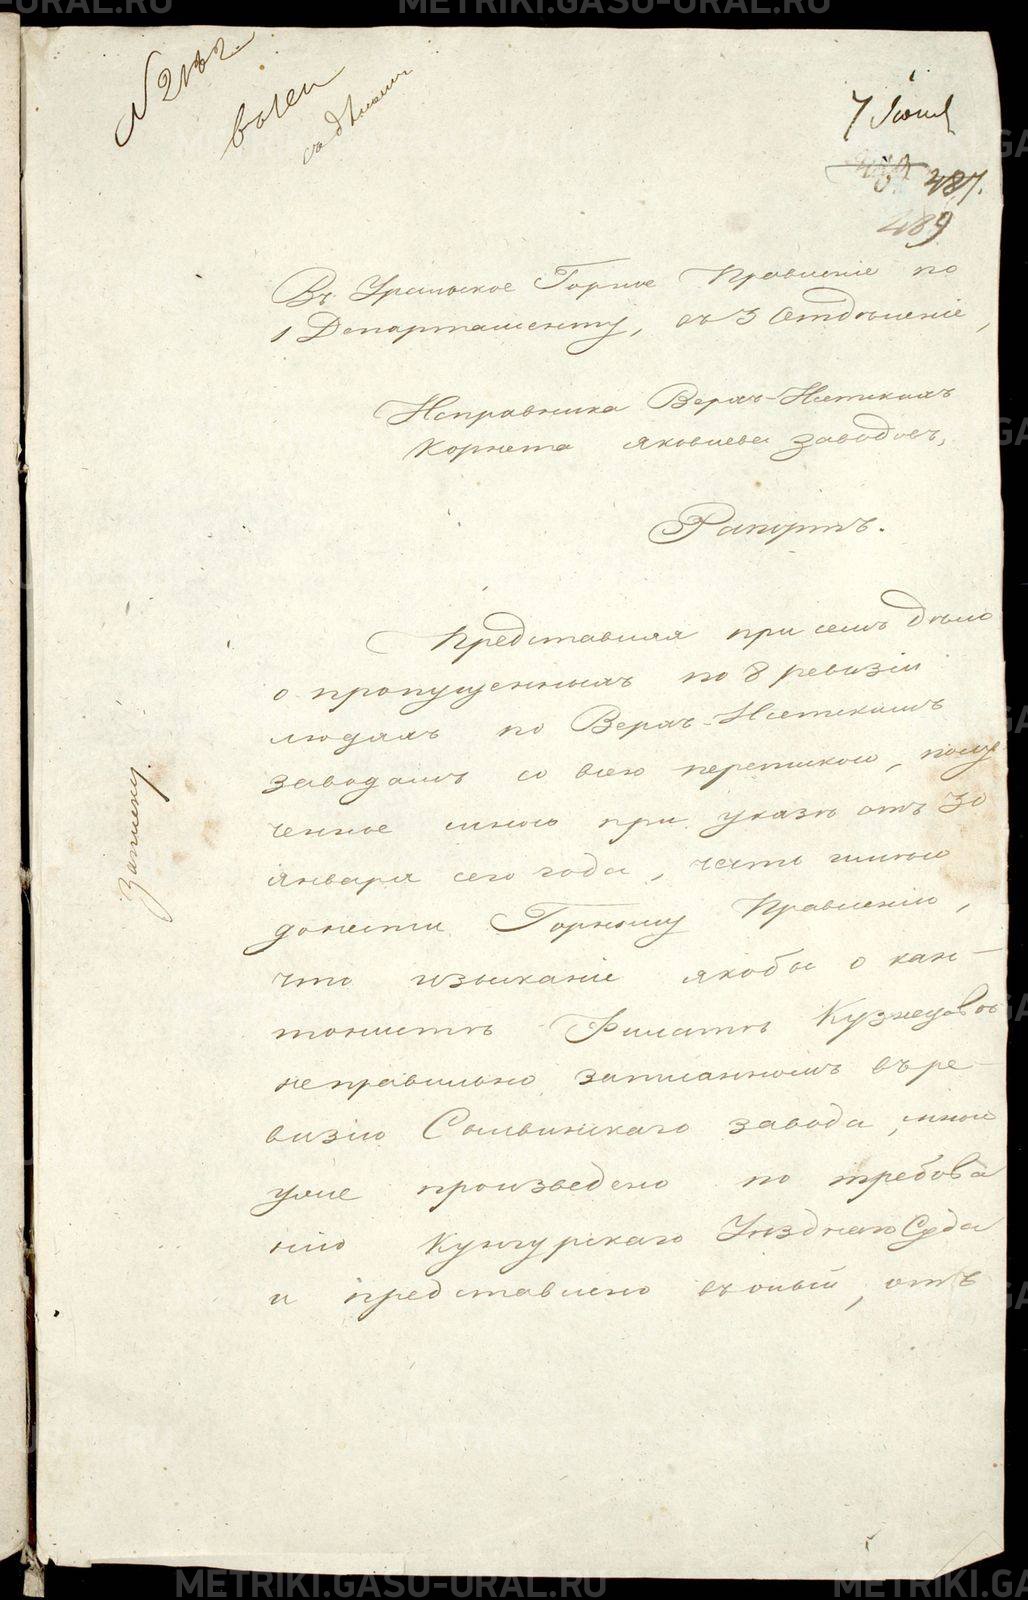 METRIKI.GASU-URAL.RU
7 Июня
487.
489
Въ Уральское Горное Правленіе по
1 Департаменту, въ 3 Отдѣленіе,
Исправника Верхъ-Исетскихъ
Корнета Яковлева заводовъ,
Рапортъ.
Представляя при семъ дѣло
о пропущенныхъ по 8 ревизіи
людяхъ по Верхъ-Исетскимъ
заводамъ со всею перепискою, полу
ченное мною при указѣ отъ 30
Января сего года, честь имѣю
донести Горному Правленію,
что изысканіе якобы о кан-
тонистѣ Филатѣ Кузнецовѣ
неправильно записанномъ въ ре-
визію Сылвинскаго завода, мною
уже произведено по требова
нію Кунгурскаго Уѣзднаго Суда
и представлено въ оный, отъ
METRIKI.GASU-URAL.RU